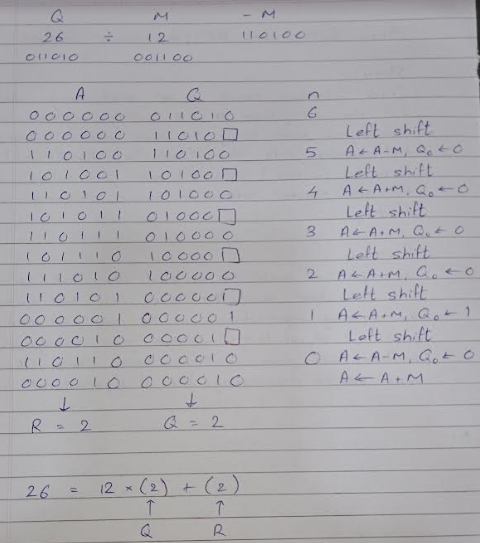 Q M - M
26 ÷ 12 110100
011010 001100
A Q n
000000 011010 6
000000 11010□ Left shift
110100 110100 5 A←A-M, Q₀←0
101001 10100□ Left shift
110101 101000 4 A←A+M, Q₀←0
101011 01000□ Left shift
110111 010000 3 A←A+M, Q₀←0
101110 10000□ Left shift
111010 100000 2 A←A+M, Q₀←0
110101 00000□ Left shift
000001 000001 1 A←A+M, Q₀←1
000010 00001□ Left shift
110110 000010 0 A←A-M, Q₀←0
000010 000010 A←A+M
↓ ↓
R = 2 Q = 2
26 = 12 × (2) + (2)
↑ ↑
Q R